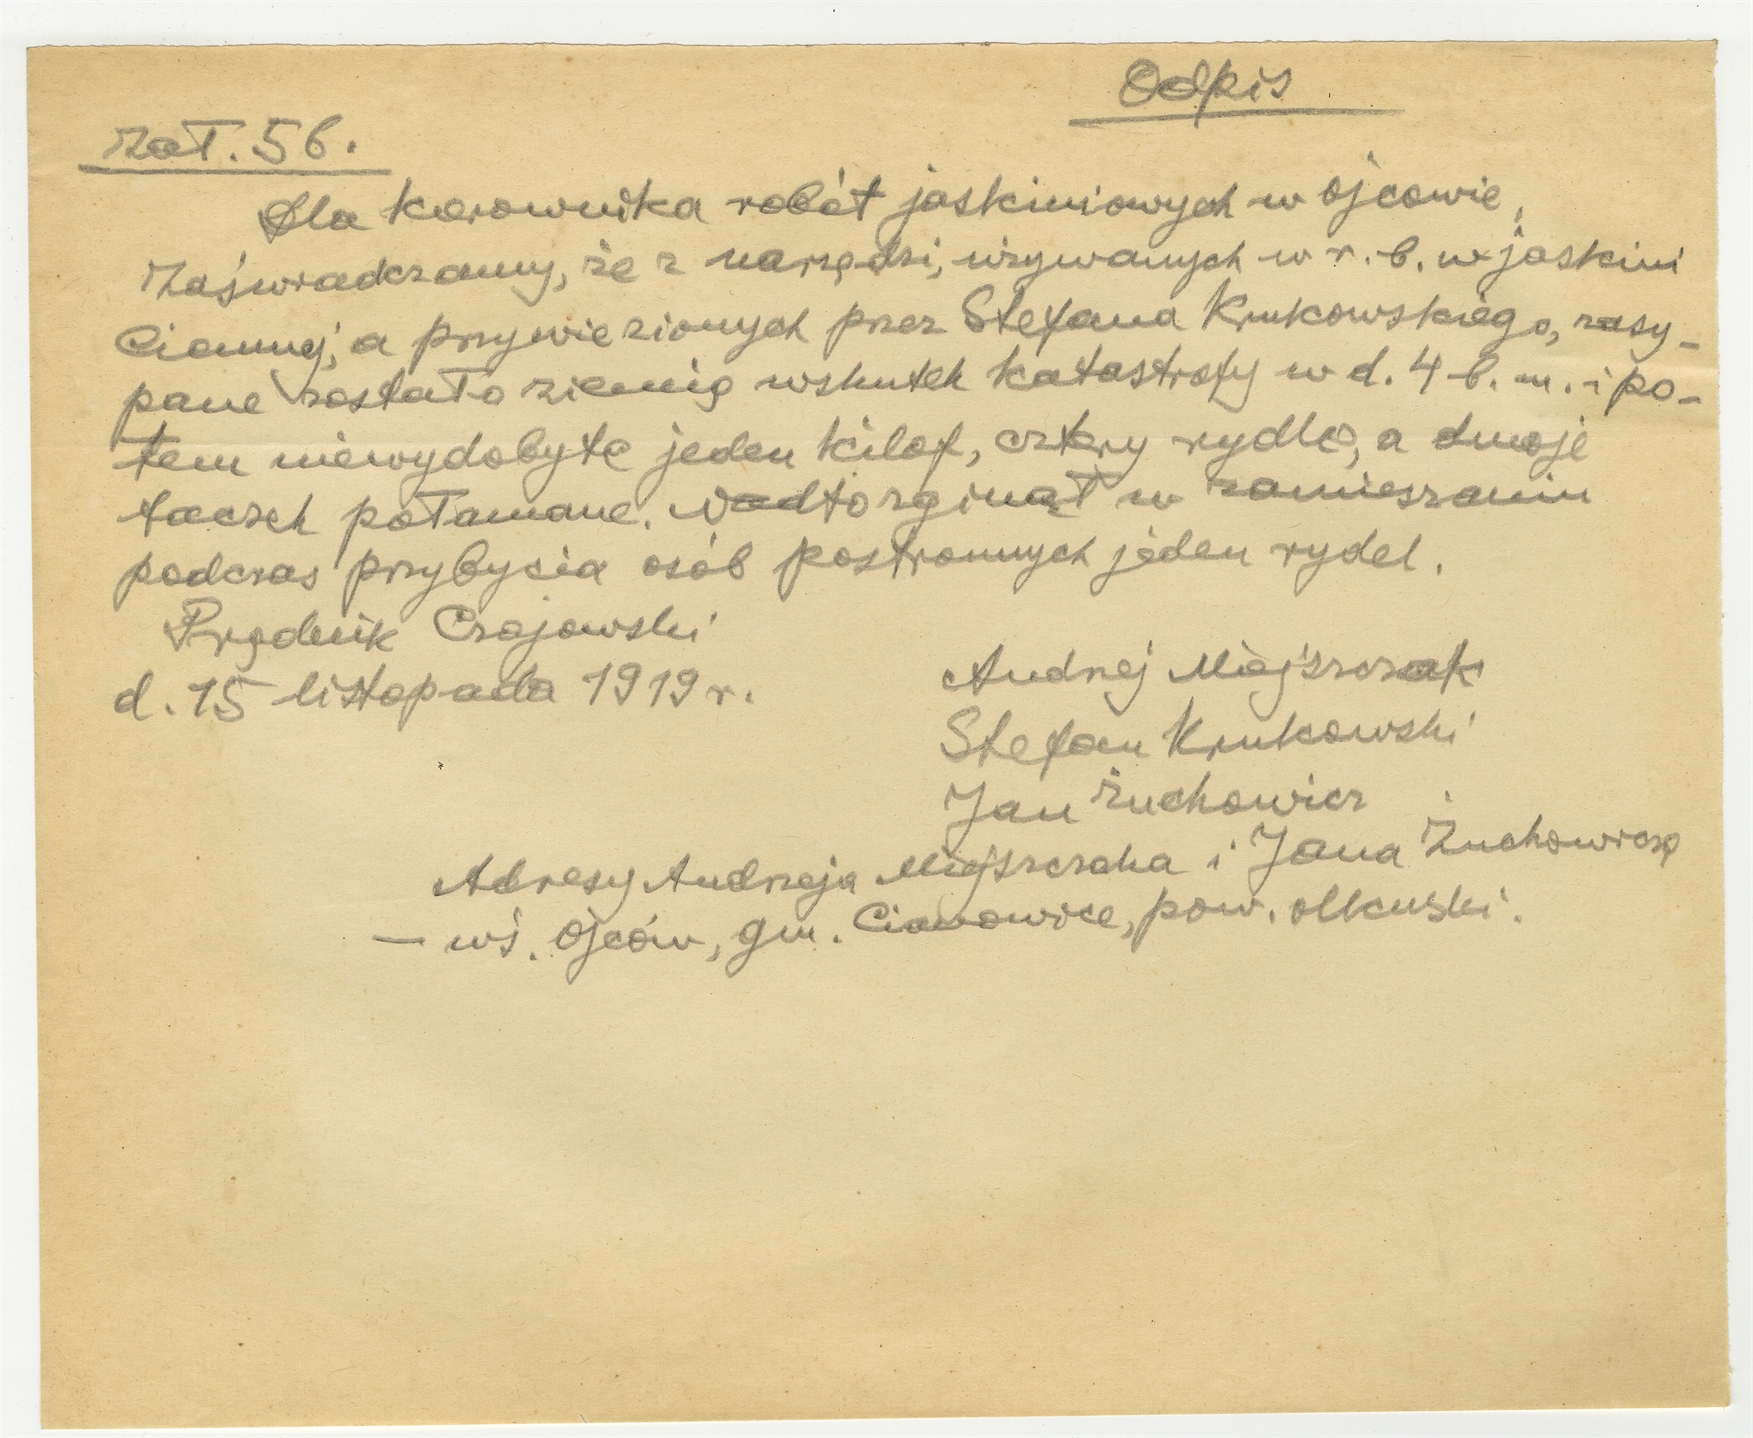 Odpis
Zał. 56.
Dla kierownika robót jaskiniowych w Ojcowie.
Zaświadczamy, że z narzędzi, używanych w r. b. w jaskini
Ciemnej, a przywiezionych przez Stefana Krukowskiego, zasy-
pane zostało ziemią wskutek katastrofy w d. 4 b. m. i po-
tem niewydobyte jeden kilof, cztery rydle, a dwoje
taczek połamane. Nadto zginął w zamieszaniu
podczas przybycia osób postronnych jeden rydel.
Prądnik Czajowski
d. 15 listopada 1919 r.
Andrzej Miejszczak
Stefan Krukowski
Jan Żuchowicz
Adresy Andrzeja Miejszczaka i Jana Żuchowicza
— wś. Ojców, gm. Cianowice, pow. olkuski.